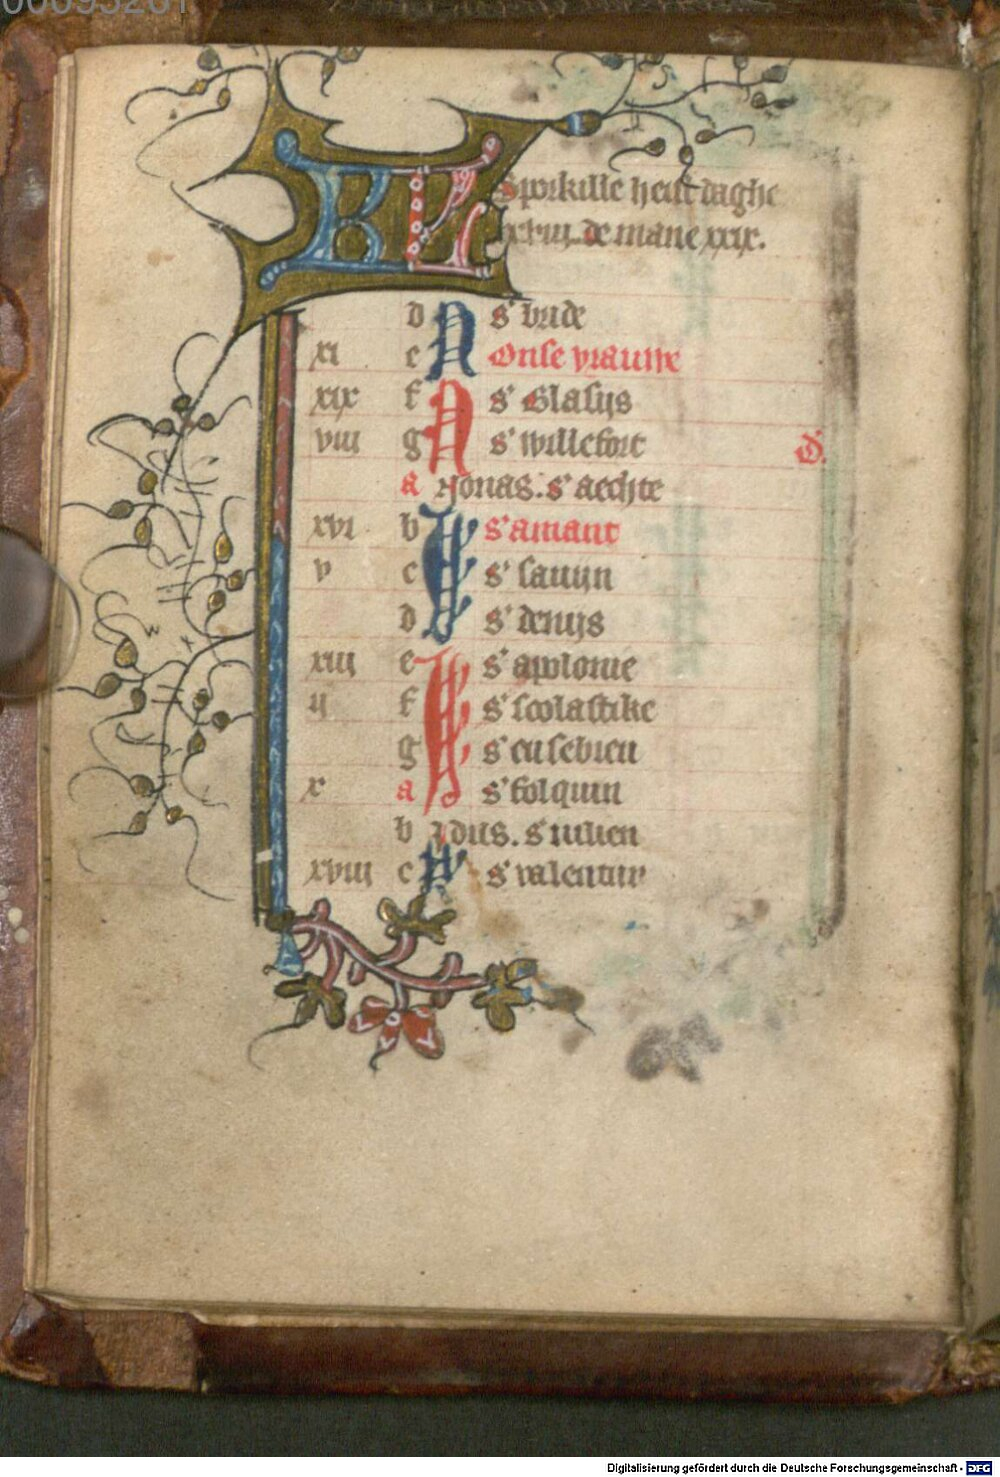 00093261
KL Sporkille heuet daghe
xxviij. de mane xxix.
d N s' bride
xi e Onse vrauwe
xix f N s' Blasijs
viii g s' willefort
D.
a Nonas. s' aechte
xvi b I s' amant
v c s' sauijn
d s' denijs
xiii e I s' apolonie
ij f s' scolastike
g s' eusebien
x a s' folquin
b Idus. s' iulien
xviii c k s' valentin
Digitalisierung gefördert durch die Deutsche Forschungsgemeinschaft - DFG